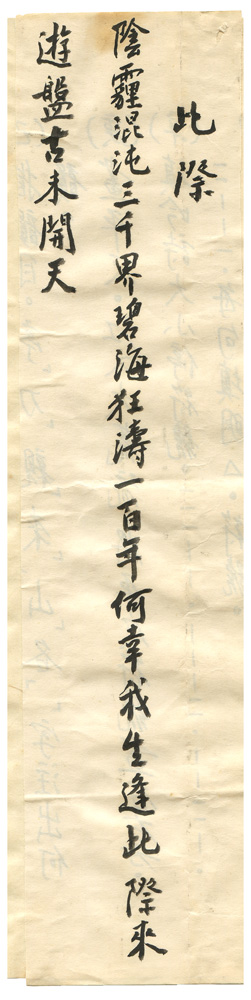 此際
陰霾混沌三千界碧海狂濤一百年何幸我生逢此際來
遊盤古未開天